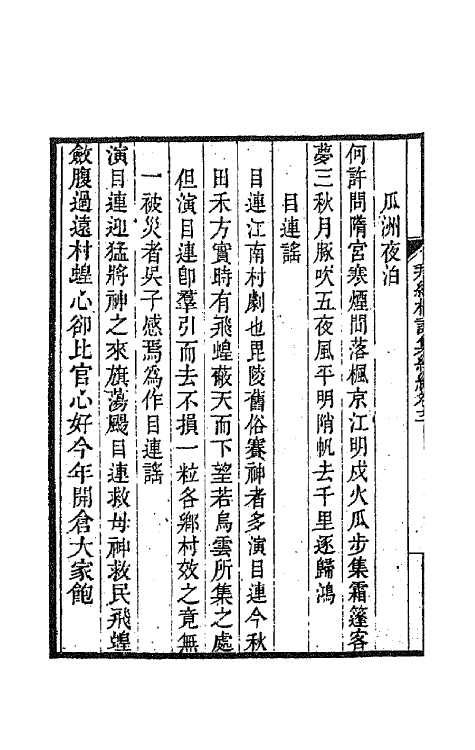 瓜洲夜泊
何許問隋宮寒煙閒落楓京江明戍火瓜步集霜篷客
夢三秋月豚吹五夜風平明陗帆去千里逐歸鴻
目連謠
目連江南村劇也毘陵舊俗賽神者多演目連今秋
田禾方實時有飛蝗蔽天而下望若烏雲所集之處
但演目連卽羣引而去不損一粒各鄉村效之竟無
一被災者吳子感焉爲作目連謠
演目連迎猛將神之來旗蕩颺目連救母神救民飛蝗
斂腹過遠村蝗心卻比官心好今年開倉大家飽